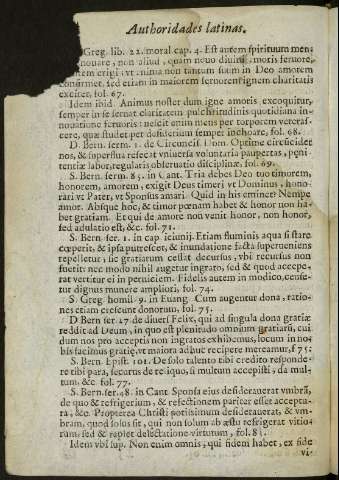 Authoridades latinas.
Greg. lib. 22. moral cap. 4. Est autem spirituum men-
nouare, non aliud, quam nouo diuini amoris feruore,
erigi; vt non tantum suum in Deo amorem
confirmet, sed etiam in maiorem feruorem ignem charitatis
excitet, fol. 67.
Idem ibid. Animus noster dum igne amoris excoquitur,
semper in se seruat claritatem pulchritudinis quotidiana in-
nouatione feruoris: nescit enim mens per torporem veteras-
cere, quæ studet per desiderium semper inchoare, fol. 68.
D. Bern. serm. 1. de Circuncis. Dom. Optime circuncidet
nos, & superflua resecet vniuersa voluntaria paupertas, pęni-
tentiæ labor, regularis obseruatio disciplinæ. fol. 69.
S. Bern. serm. 83. in Cant. Tria debes Deo tuo timorem,
honorem, amorem, exigit Deus timeri vt Dominus, hono-
rari vt Pater, vt Sponsus amari. Quid in his eminet? Nempe
amor. Absque hoc, & timor pœnam habet & honor non ha-
bet gratiam. Et qui de amore non venit honor, non honor,
sed adulatio est, &c. fol. 71.
S. Bern. ser. 1. in cap. ieiunij. Etiam fluminis aqua si stare
cœperit, & ipsa putrescet, & inundatione facta superueniens
repelletur; sic gratiarum cessat decursus, vbi recursus non
fuerit: nec modo nihil augetur ingrato, sed & quod accepe-
rat vertitur ei in perniciem. Fidelis autem in modico, cense-
tur dignus munere ampliori, fol. 74.
S. Greg. homil. 9. in Euang. Cum augentur dona, ratio-
nes etiam crescunt donorum, fol. 75.
D Bern ser. 27. de diuers. Felix, qui ad singula dona gratiæ
reddit ad Deum, in quo est plenitudo omnium gratiarũ, cui
dum nos pro acceptis non ingratos exhibemus, locum in no-
bis facimus gratiæ, vt maiora adhuc recipere mereamur, f. 75:
S. Bern. Epist. 101. De solo talento tibi credito responde-
re tibi para, securus de reliquo, si multum accepisti, da mul-
tum, &c. fol. 77.
S. Bern. ser. 48. in Cant. Sponsa eius desiderauerat vmbrã,
de quo & refrigerium, & refectionem pariter esset acceptu-
ra, &c. Propterea Christi potissimum desiderauerat, & vm-
bram, quod solus sit, qui non solum ab æstu refrigerat vitio-
rum, sed & replet delectatione virtutum, fol. 85.
Idem vbi sup. Non enim omnis, qui fidem habet, ex fide
vi-